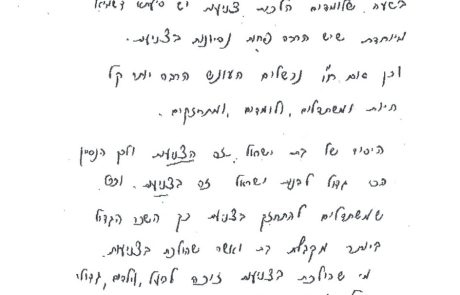 בשעה שלומדים הלכות צניעות יש סיעתא דשמיא
מיוחדת שיש הרבה פחות נסיונות בצניעות.
וכן אם ח"ו נכשלים העונש הרבה יותר קל
היות ומשתדלים, ולומדים, ומתחזקים.
היסוד של בת ישראל זה הצניעות ולכן הנסיון
הכי גדול לבנות ישראל זה בצניעות. וכפי
שמשתדלים להתחזק בצניעות כך השכר הגדול
ביותר מקבלת בת ואשה שהולכת בצניעות.
מי שהולכת בצניעות זוכה לבעל, וילדים, גדולי